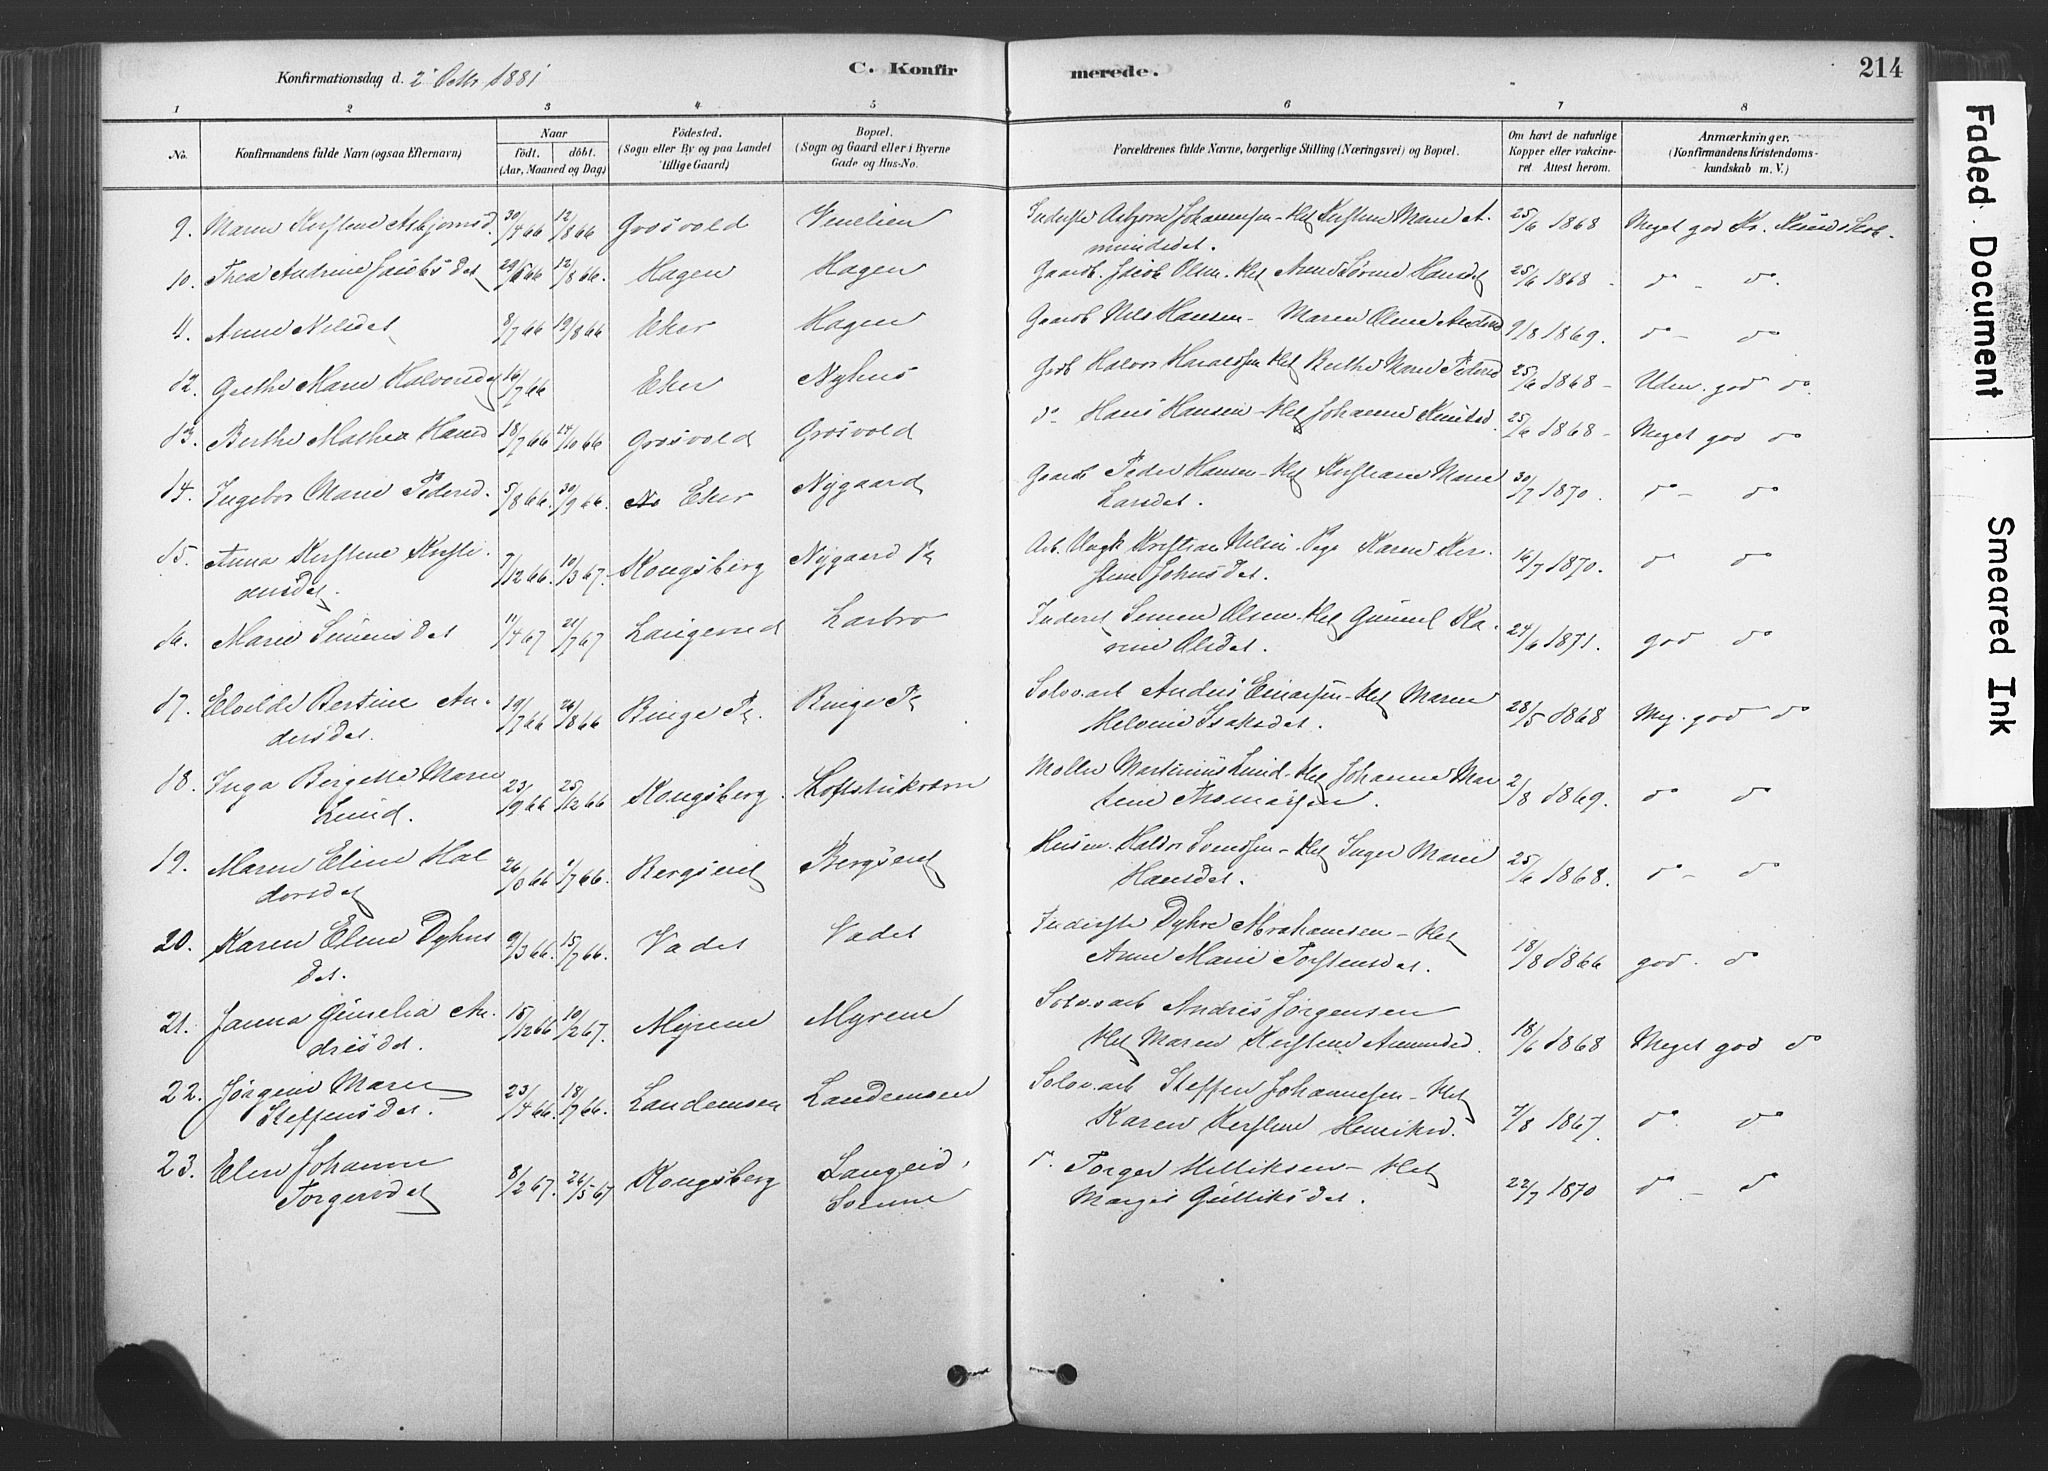 Konfirmationsdag d. 2' Octbr 1881
C. Konfirmerede.
214
1 2 3 4 5 6 7 8
No.
Konfirmandens fulde Navn (ogsaa Efternavn)
Naar
födt. döbt.
(Aar, Maaned og Dag)
Födested.
(Sogn eller By og paa Landet tillige Gaard)
Bopæl.
(Sogn og Gaard eller i Byerne Gade og Hus-No.
Forældrenes fulde Navne, borgerlige Stilling (Næringsvei) og Bopæl.
Om havt de naturlige Kopper eller vakcineret Attest herom.
Anmærkninger.
(Konfirmandens Kristendomskundskab m. V.)
9. Maren Kirstine Asbjørnsd. 30/4 66 12/8 66 Grosvold Venelien Inderste Asbjørn Johannesen - Het Kirstine Marie Amundsdet. 25/6 1868 Meget god Kr. Kundskab
10. Thea Antrine Jacobsdet 29/5 66 12/8 66. Hagen Hagen Gaardb. Jacob Olsen - Het Anne Sørine Hansdet 25/6 1868 - do - do.
11. Anne Nilsdet 8/7 66 19/8 66 Eker Hagen Gaardb Nils Hansen - Maren Oline Andersd 9/8 1869. do - do
12. Grethe Marie Halvorsdet 16/7 66 Eker Nyhus Grdb Halvor Haraldsen Het Berthe Marie Pedersd 25/6 1868 - Udm. god do.
13. Berthe Mathea Hansd 18/7 66 14/10 66 Grosvold Grosvold do Hans Hansen - Het Johanne Knudsd. 25/6 1868 - Meget god do
14. Ingebor Marie Pedersd. 5/8 66. 30/9 66. Eker Nygaard Gaardb Peder Hansen - Het Kirstiane Marie Larsdet. 30/7 1870. do - do
15. Anna Kirstine Kristiansdet. 7/12 66. 10/3 67. Kongsberg Nygaard Pl Arb. Ungk Kristian Nilsen - Pige Karen Kirstine Johnsdet. 16/7 1870. do do
16. Marie Simensdet 11/4 67 21/7 67 Langerud Larbro Inderst Simen Olsen - Het Gunnel Karine Olsdet. 24/6 1871. god do
17. Elvilde Bertine Andersdet. 19/7 66 26/8 66 Binge Pl. Binge Pl Sølvarb Anders Einarsen - Het Maren Helvine Isaksdet. 28/5 1868 Meg. god do
18. Inga Birgette Marie Lund. 23/9 66 25/12 66 Kongsberg. Loftstukværn Møller Martinius Lund - Het Johanne Martine 2/8 1869. do do
19. Maren Eline Haldorsdet 26/ 66 1/7 66. Bergseiet Bergseiet Husm. Haldor Svendsen - Het Inger Marie Hansdet. 25/6 1868. do - do
20. Karen Eline Dyhresdet. 9/3 66. 15/7 66. Vadet Vadet Inderste Dyhre Abrahamsen - Het Anne Marie Torstensdet. 18/8 1866 god. do
21. Janna Gunelia Andrisdet. 15/12 66 10/2 67. Myrene Myrene Sølvarb Andris Jørgensen Het Maren Kirstine Amundsd. 18/6 1868 Meget god do
22. Jørgine Marie Steffensdet. 23/4 66. 18/7 66. Landemsen Landemsen Sølvarb Steffen Johannesen - Het Karen Kirstine Henriksd. 7/8 1867. do do
23. Elen Johanne Torgersdet 8/2 67. 26/5 67 Kongsberg Langlid, do. Torger Helliksen - Het Margit Gulliksdet. 22/7 1870 do - do
Faded Document
Smeared Ink